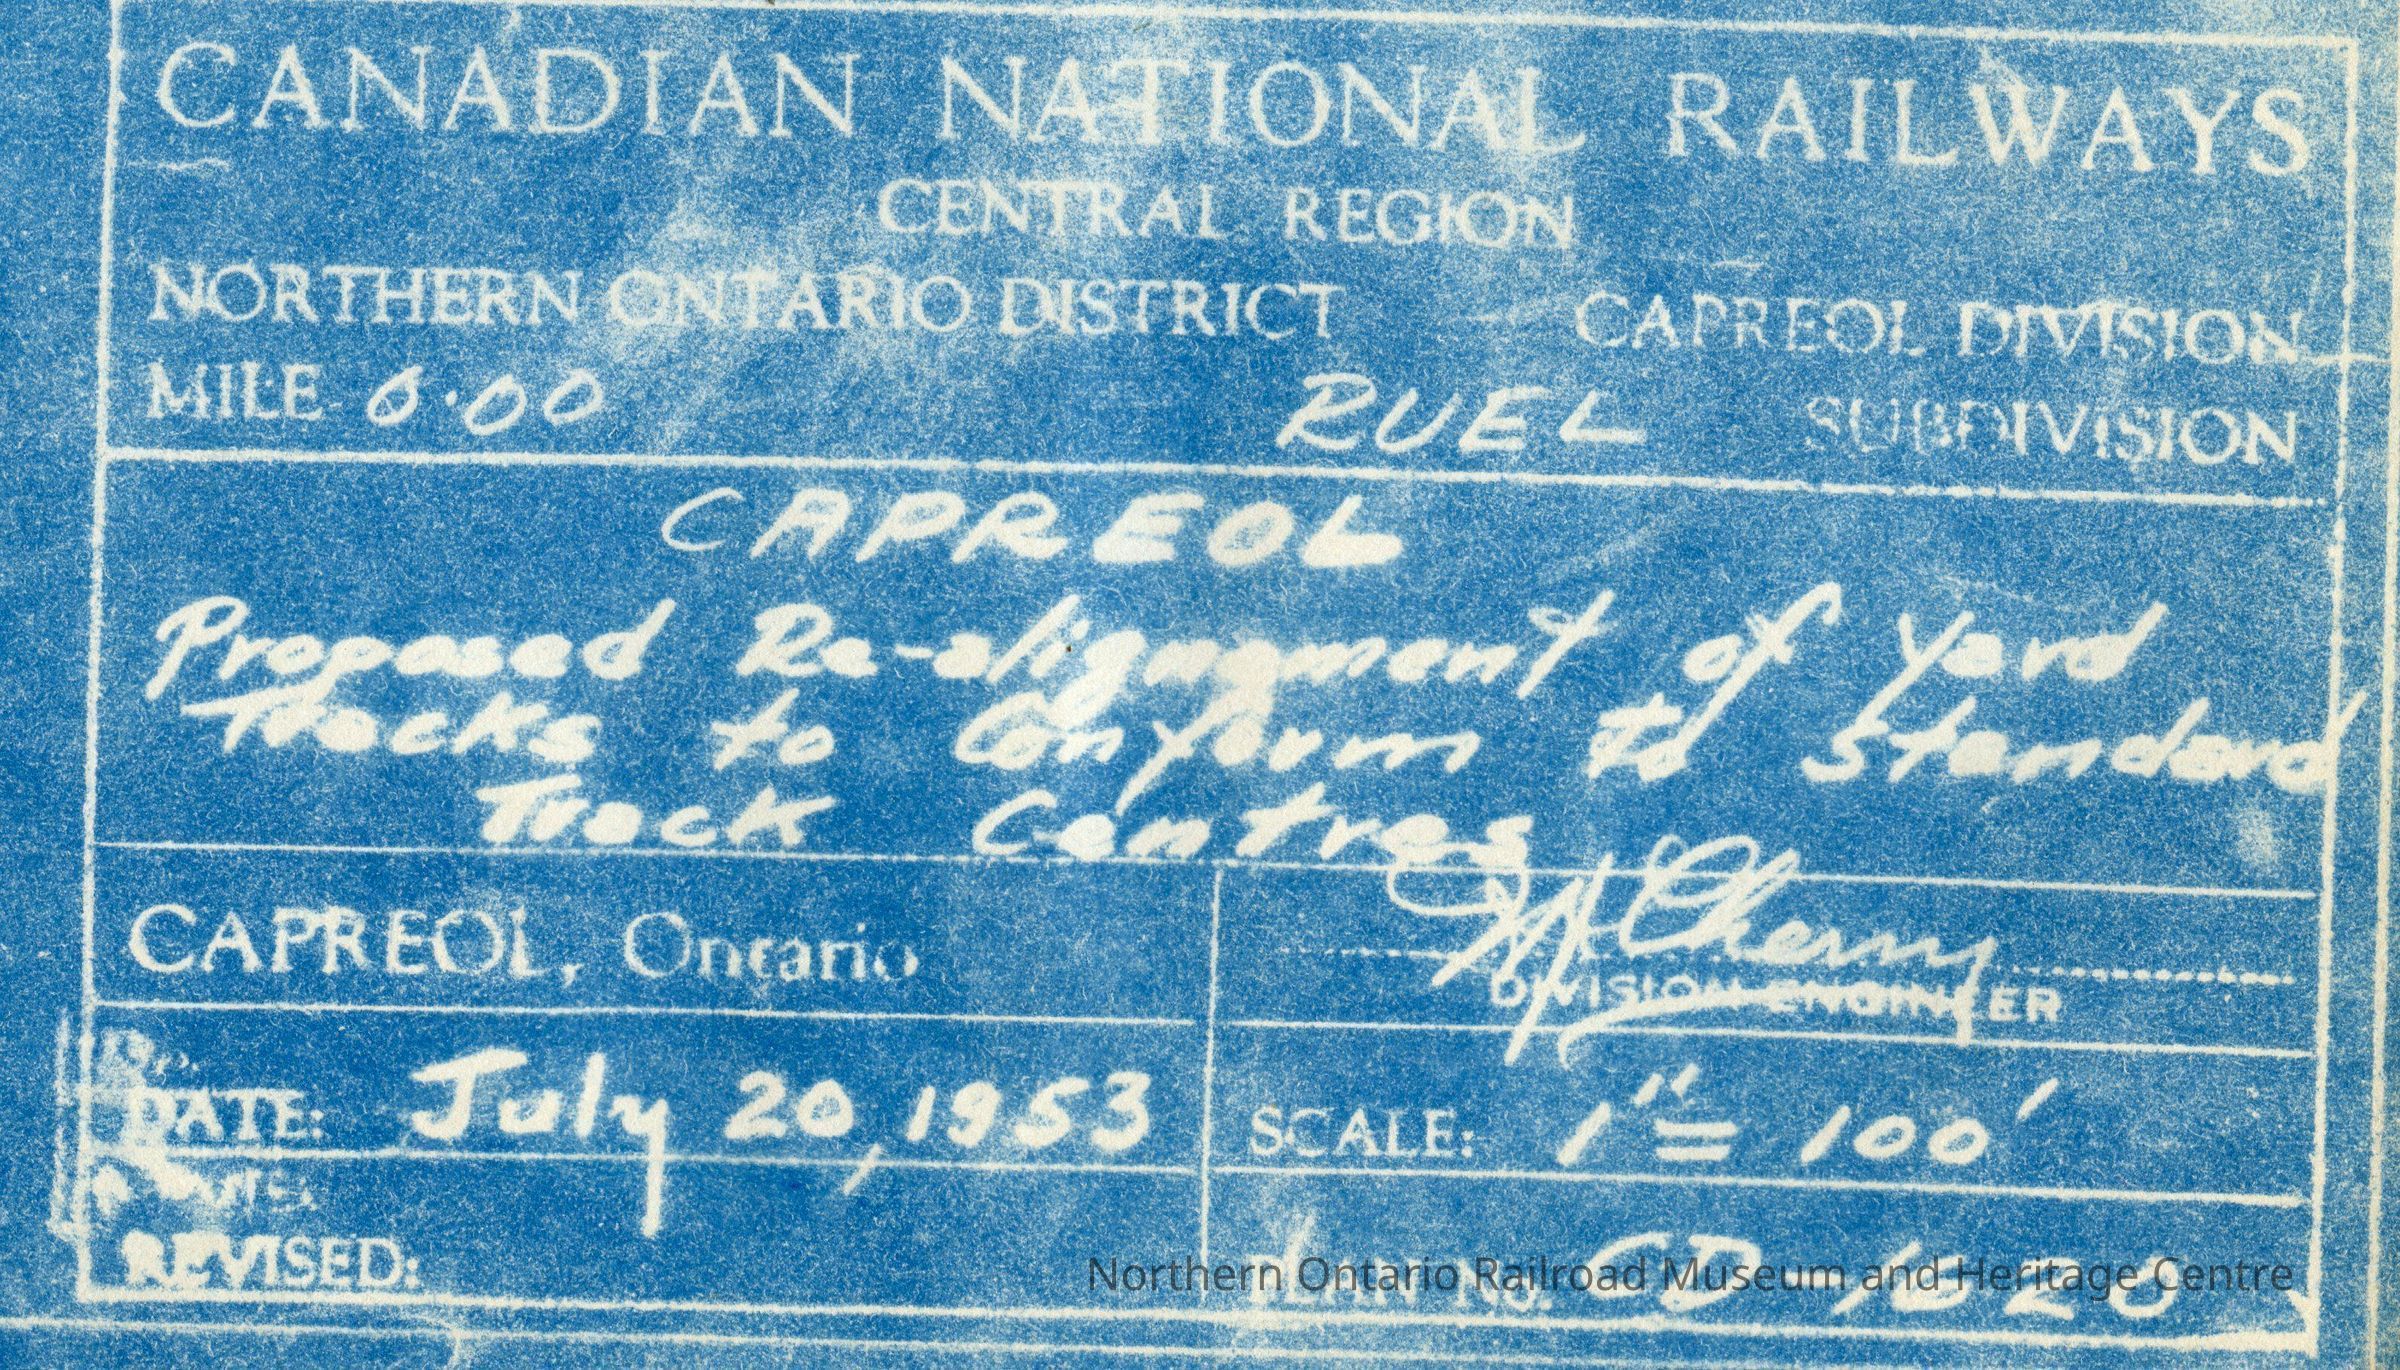 CANADIAN NATIONAL RAILWAYS
CENTRAL REGION
NORTHERN ONTARIO DISTRICT CAPREOL DIVISION
MILE 0.00 RUEL SUBDIVISION
CAPREOL
Proposed Re-alignment of Yard
Tracks to Conform to Standard
Track Centres
CAPREOL, Ontario
DIVISION ENGINEER
DATE: July 20, 1953 SCALE: 1" = 100'
REVISED: PLAN No. CD
Northern Ontario Railroad Museum and Heritage Centre